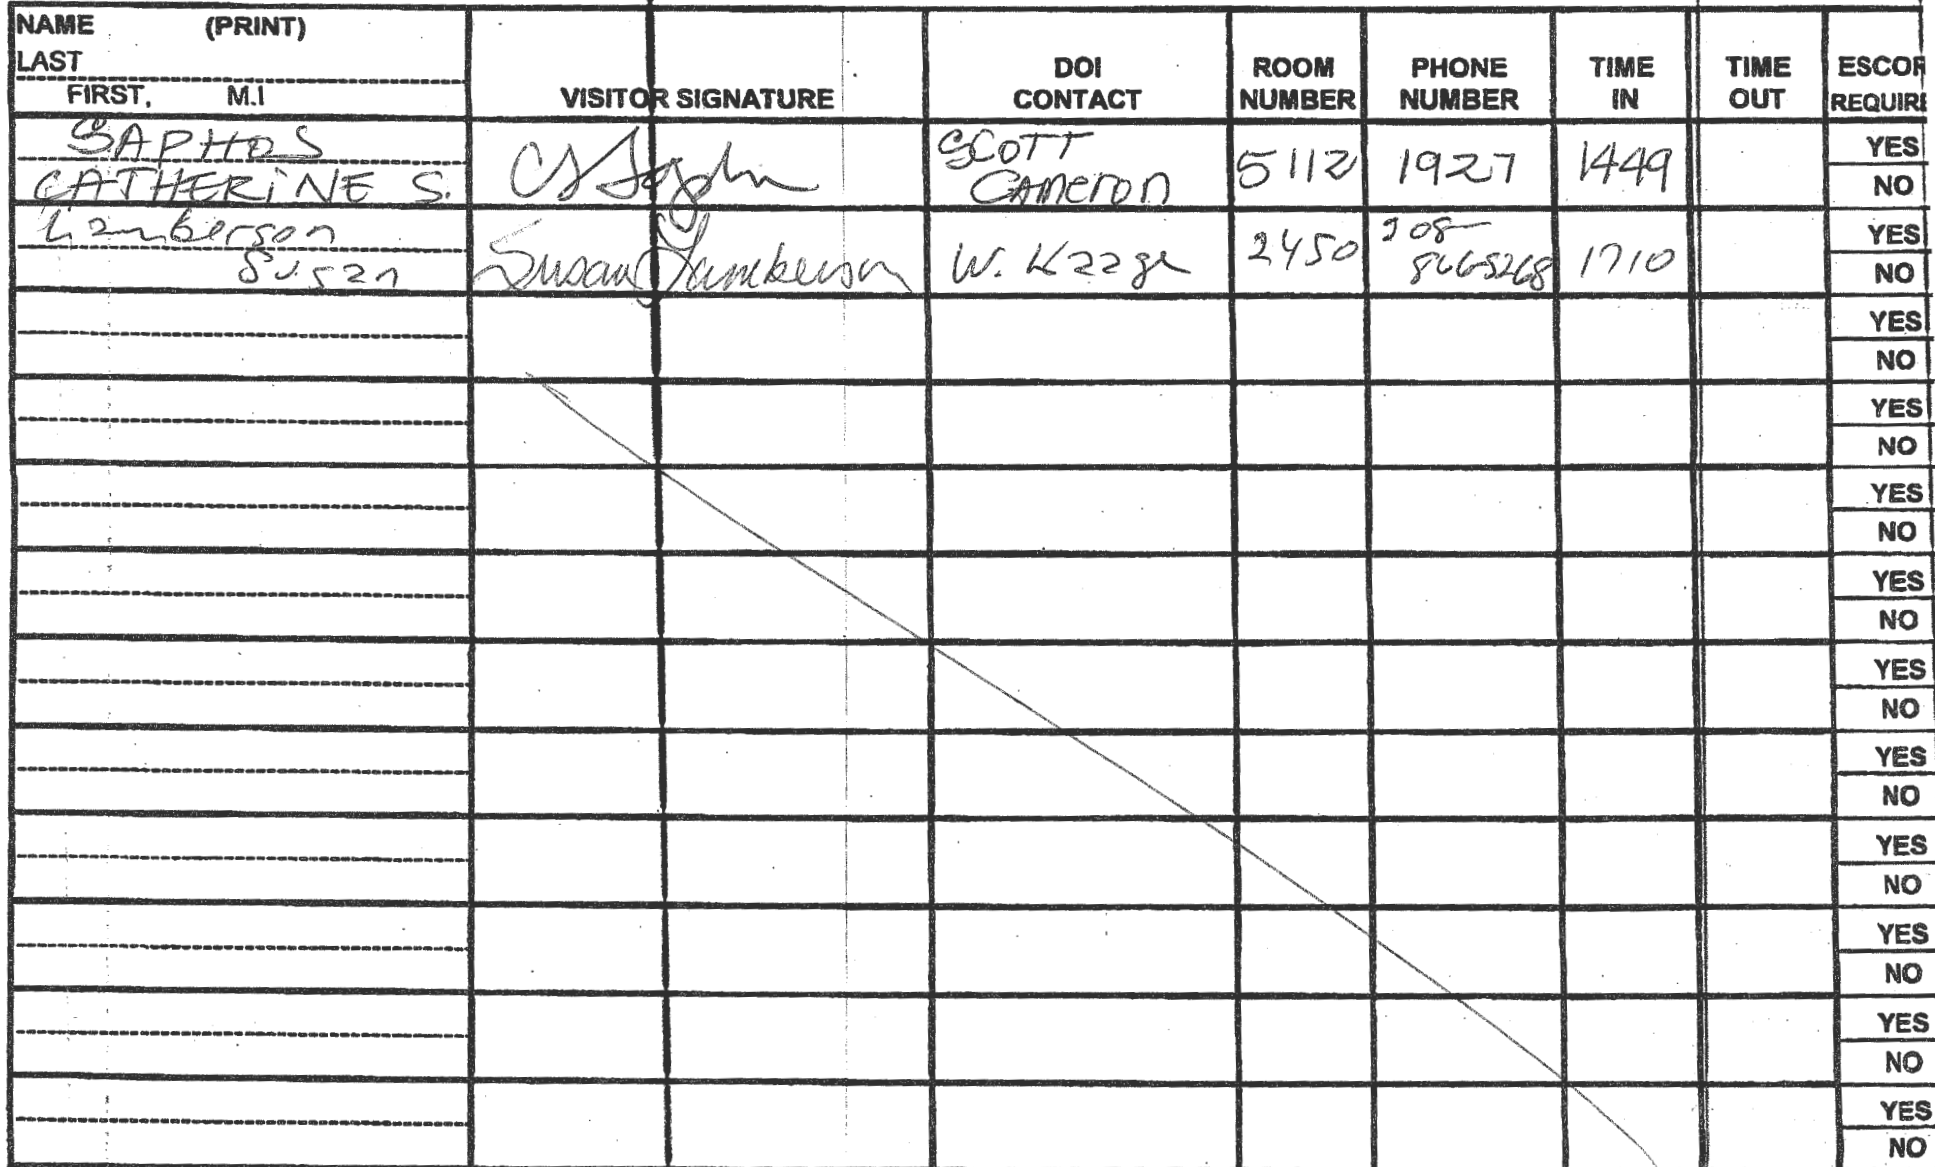 NAME (PRINT)
LAST
FIRST, M.I
VISITOR SIGNATURE
DOI
CONTACT
ROOM
NUMBER
PHONE
NUMBER
TIME
IN
TIME
OUT
ESCOR
REQUIRE
SAPHOS
CATHERINE S.
SCOTT
Cameron
5112
1927
1449
YES
NO
Lamberson
Susan
Susan Lamberson
W. Kaage
2450
208-
866-5268
1710
YES
NO
YES
NO
YES
NO
YES
NO
YES
NO
YES
NO
YES
NO
YES
NO
YES
NO
YES
NO
YES
NO